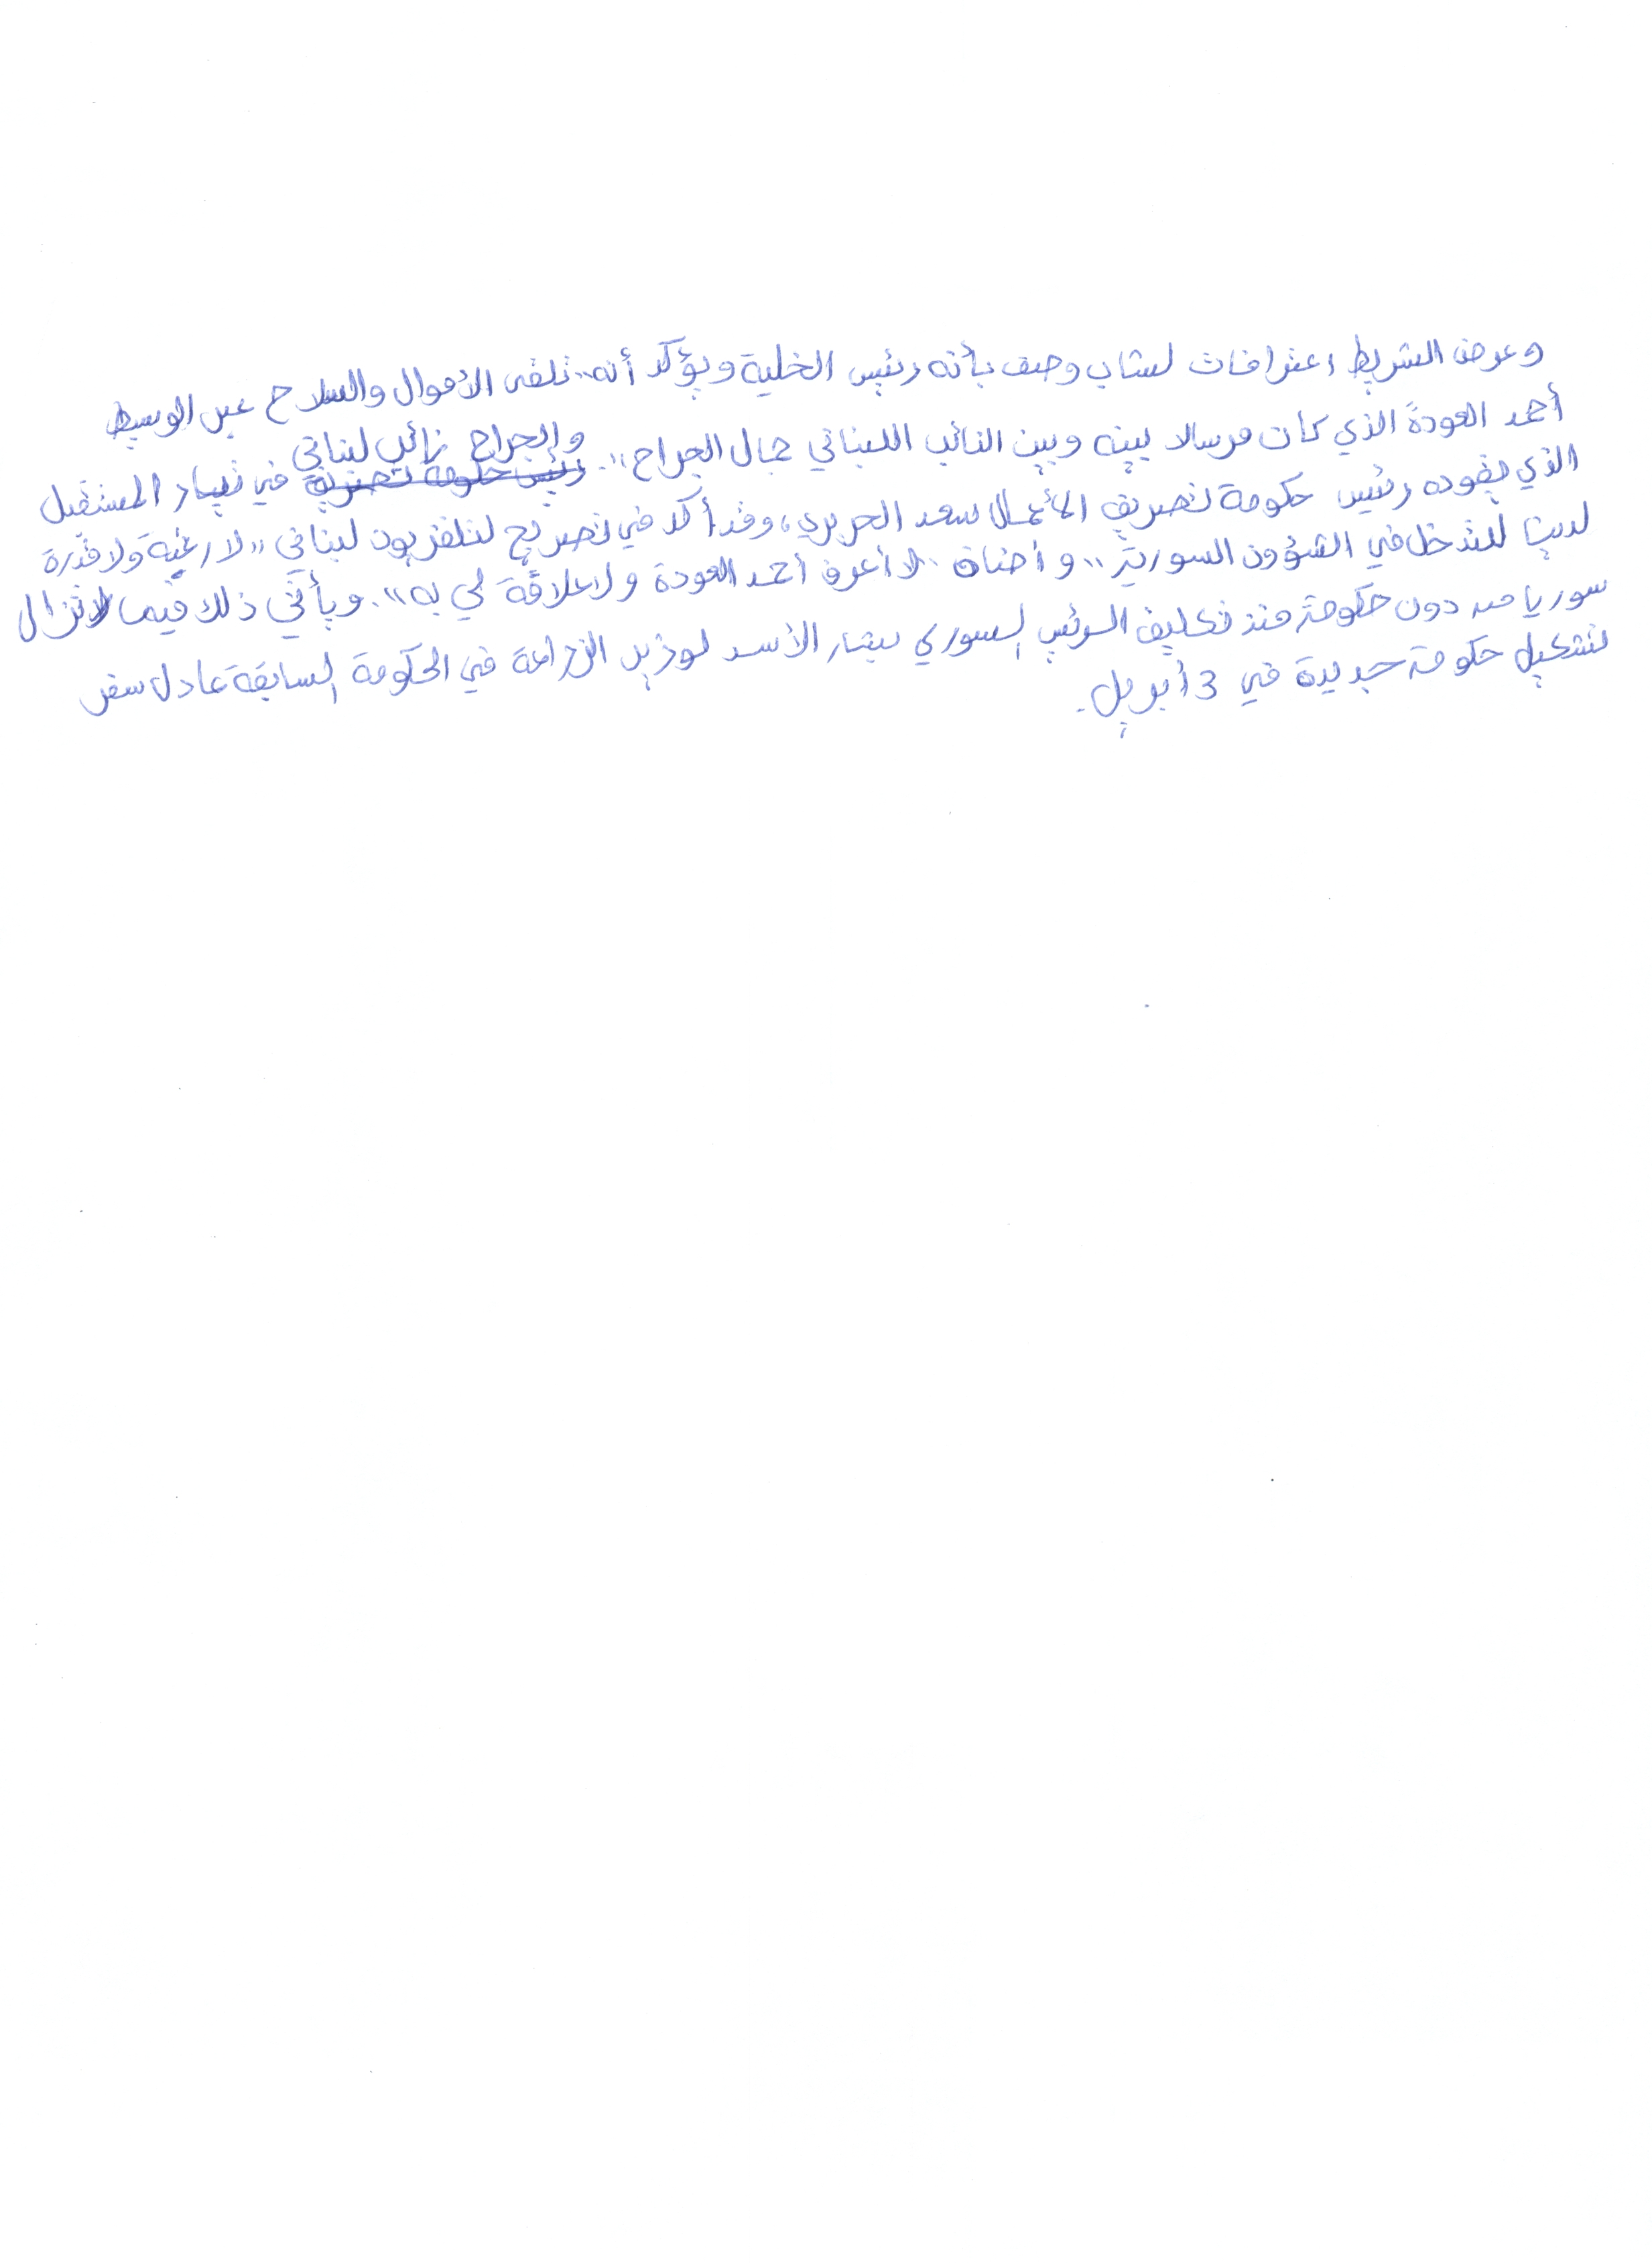 وعرض الشريط اعترافات لشاب وصف بأنه رئيس الخلية ويؤكد أنه "تلقى الأموال والسلاح عبر الوسيط
أحمد العودة الذي كان مرسالا بينه وبين النائب اللبناني جمال الجراح". والجراح نائب لبناني في تيار المستقبل
الذي يقوده رئيس حكومة تصريف الأعمال سعد الحريري، وقد أكد في تصريح لتلفزيون لبناني "لا رغبة ولا قدرة
لدينا للتدخل في الشؤون السورية" وأضاف "لا أعرف أحمد العودة ولا علاقة لي به". ويأتي ذلك فيما لا تزال
سوريا من دون حكومة منذ تكليف الرئيس السوري بشار الأسد لوزير الزراعة في الحكومة السابقة عادل سفر
لتشكيل حكومة جديدة في 3 أبريل.